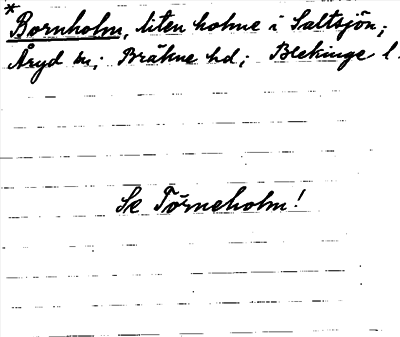 *
Bornholm, liten holme i Saltsjön;
Åryd sn; Bräkne hd; Blekinge l.
Se Törneholm!